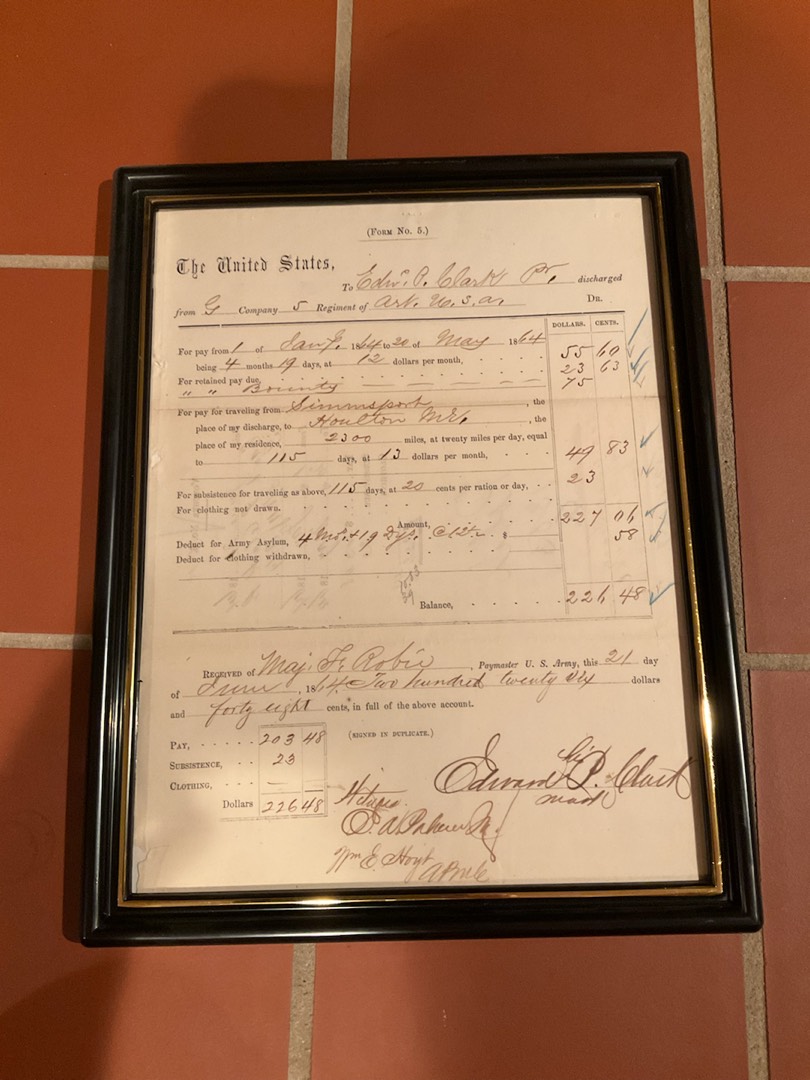 (Form No. 5.)
The United States,
To Edw. P. Clark Pr. discharged
from G Company 5 Regiment of Ark. U.S.A. Dr.
DOLLARS. CENTS.
For pay from 1 of Jan'y. 1864 to 20 of May 1864
being 4 months 19 days, at 12 dollars per month, 55 60
For retained pay due, 23 63
" " Bounty 75
For pay for traveling from Simmsport, the
place of my discharge, to Houlton Me., the
place of my residence, 2300 miles, at twenty miles per day, equal
to 115 days, at 13 dollars per month, 49 83
For subsistence for traveling as above, 115 days, at 20 cents per ration or day, 23
For clothing not drawn.
Amount, 227 06
Deduct for Army Asylum, 4 Mos. + 19 Dys. $ 58
Deduct for clothing withdrawn,
Balance, 226 48
Received of Maj. F. Robie, Paymaster U. S. Army, this 21 day
of June, 1864. Two hundred twenty six dollars
and forty eight cents, in full of the above account.
Pay, 203 48
(SIGNED IN DUPLICATE.)
Subsistence, 23
Clothing,
Dollars 226 48
Edward P. Clark
mark
Witness
Wm E. Hoyt